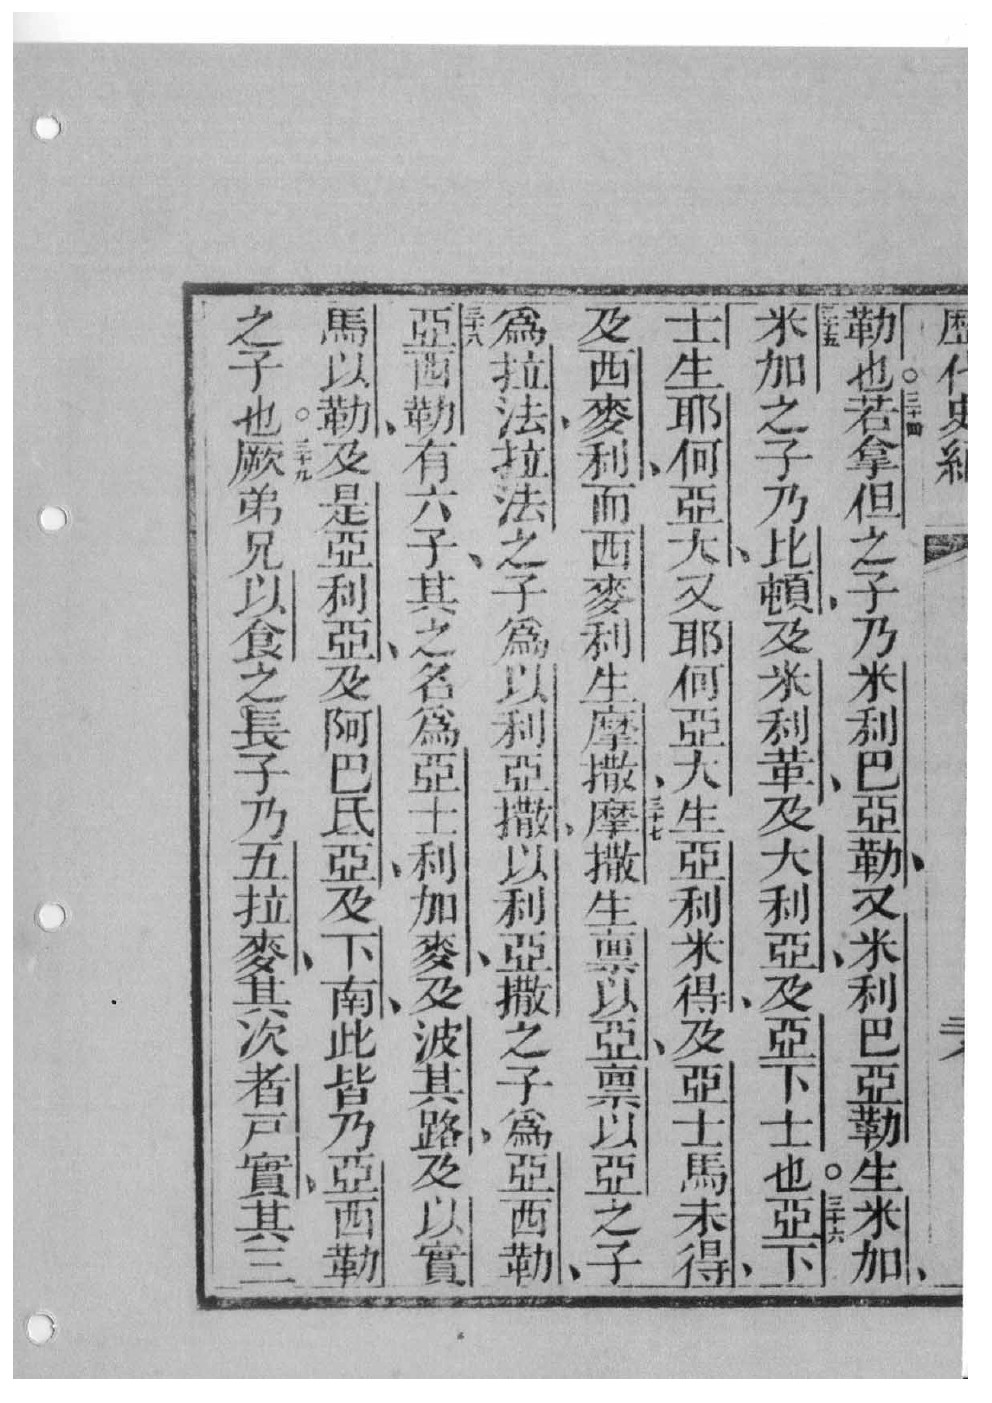 歷代史紀
勒也○三十四若拿但之子乃米利巴亞勒、又米利巴亞勒生米加、
三十五米加之子乃比頓、及米利革、及大利亞、及亞下士也○三十六亞下
士生耶何亞大、又耶何亞大生亞利米得、及亞士馬未得、
及西麥利、而西麥利生摩撒、三十七摩撒生禀以亞、禀以亞之子
爲拉法、拉法之子爲以利亞撒、以利亞撒之子爲亞西勒、
三十八亞西勒有六子、其之名爲亞士利加麥、及波其路、及以實
馬以勒、及是亞利亞、及阿巴氏亞、及下南、此皆乃亞西勒
之子也○三十九厥弟兄以食之長子乃五拉麥、其次者戸實、其三